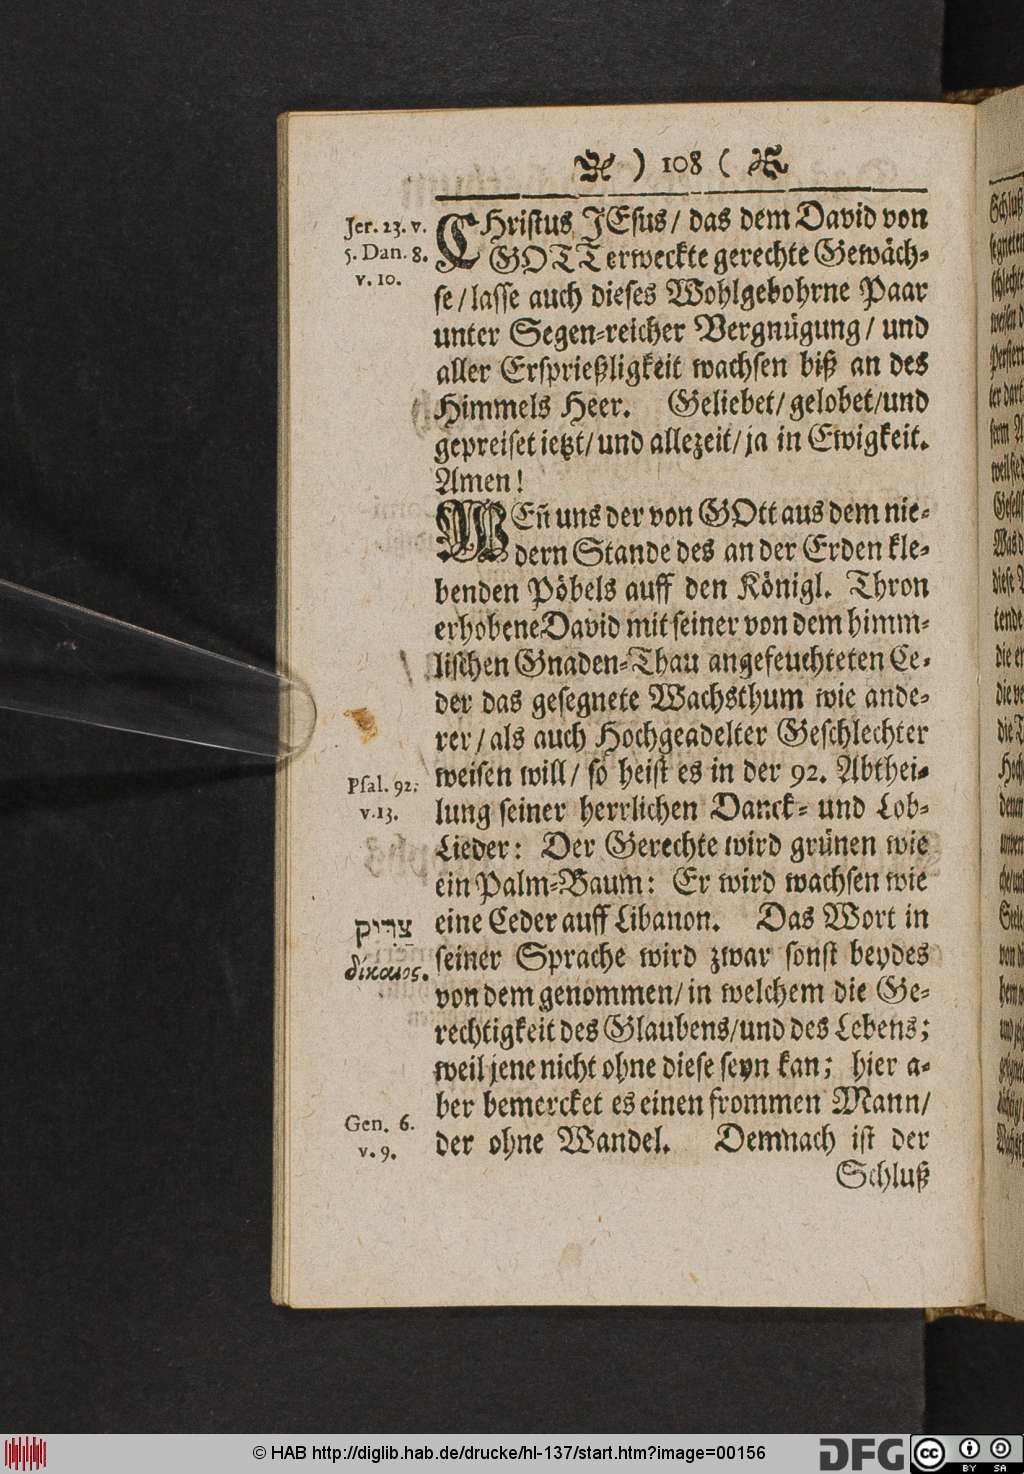 ) 108 (
CHristus JEsus/ das dem David von
GOTT erweckte gerechte Gewäch-
se/ lasse auch dieses Wohlgebohrne Paar
unter Segen-reicher Vergnügung/ und
aller Ersprießligkeit wachsen biß an des
Himmels Heer. Geliebet/ gelobet/ und
gepreiset ietzt/ und allezeit/ ja in Ewigkeit.
Amen!
Jer. 23. v.
5. Dan. 8.
v. 10.
WEñ uns der von GOtt aus dem nie-
dern Stande des an der Erden kle-
benden Pöbels auff den Königl. Thron
erhobene David mit seiner von dem himm-
lischen Gnaden-Thau angefeuchteten Ce-
der das gesegnete Wachsthum wie ande-
rer/ als auch Hochgeadelter Geschlechter
weisen will/ so heist es in der 92. Abthei-
lung seiner herrlichen Danck- und Lob-
Lieder: Der Gerechte wird grünen wie
ein Palm-Baum: Er wird wachsen wie
eine Ceder auff Libanon. Das Wort in
seiner Sprache wird zwar sonst beydes
von dem genommen/ in welchem die Ge-
rechtigkeit des Glaubens/ und des Lebens;
weil jene nicht ohne diese seyn kan; hier a-
ber bemercket es einen frommen Mann/
der ohne Wandel. Demnach ist der
Schluß
Psal. 92.
v. 13.
צַדִּיק
δίκαιος.
Gen. 6.
v. 9.
© HAB http://diglib.hab.de/drucke/hl-137/start.htm?image=00156
DFG
cc
BY SA